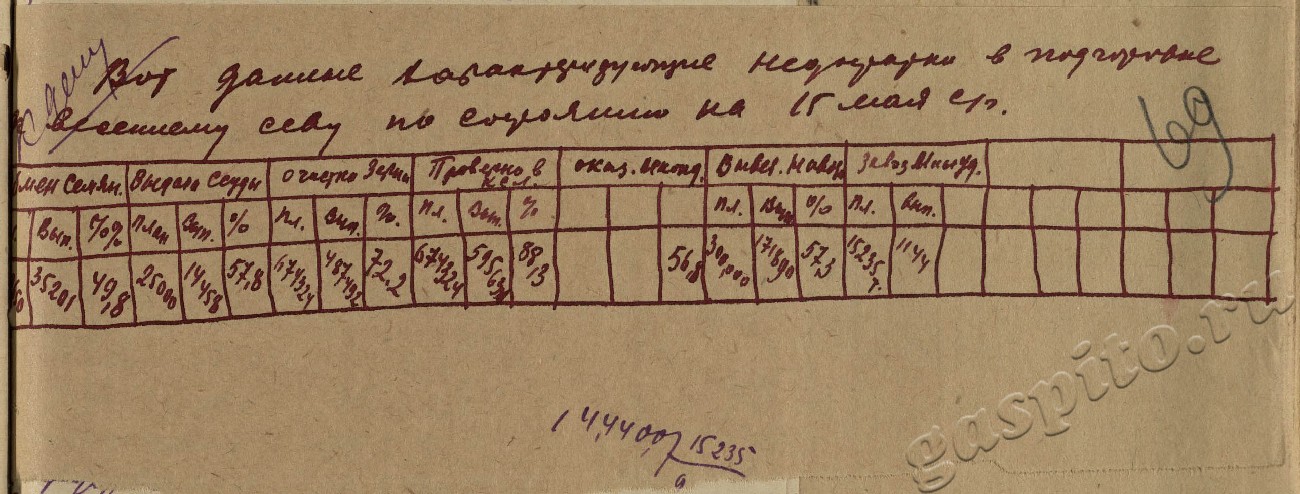 Вот данные характеризующие недостатки в подготовке
к весеннему севу по состоянию на 15 мая с/г.
69
мен Семян. Выдача Ссуды Очистка Зерна Проверено в Вывез. Навоза Завоз Мин.уд.
Вып. %% План Вып. % Пл. Вып. %. Пл. Вып. % Пл. Вып % Пл. Вып.
35201 49,8 25000 14458 57,8 674324 487492 72,2 674324 595631 88,3 56,8 300,000 171890 57,3 15235 т. 1144
144400 15235
gaspito.ru